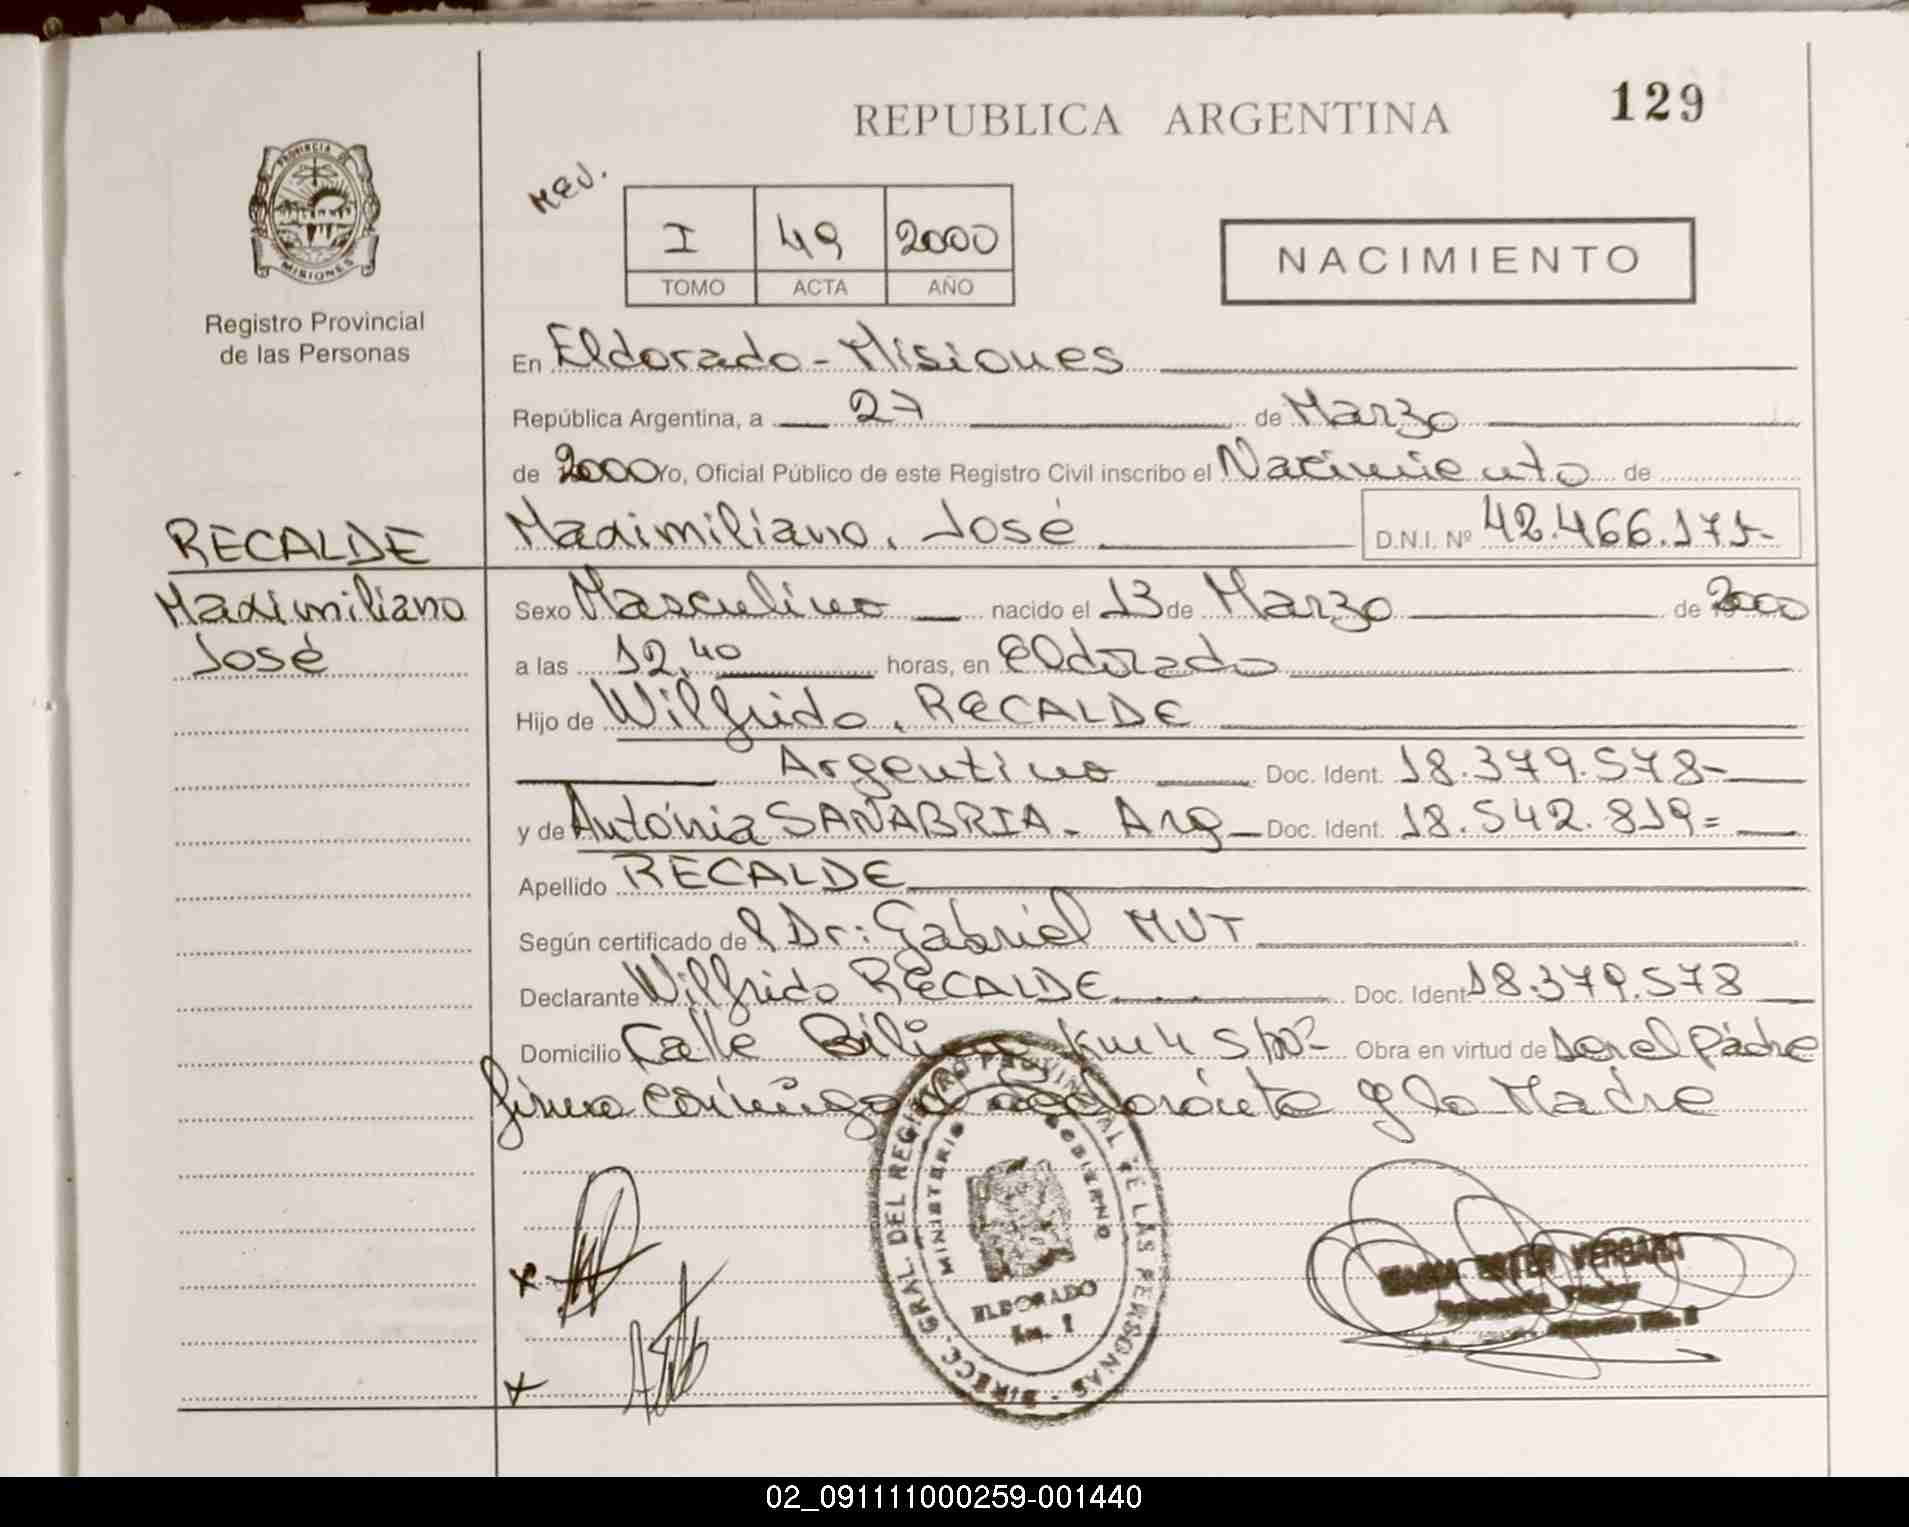 REPUBLICA ARGENTINA
129
PROVINCIA DE
MISIONES
Registro Provincial
de las Personas
I 49 2000
TOMO ACTA AÑO
NACIMIENTO
En Eldorado - Misiones
República Argentina, a 27 de Marzo
de 2000 Yo, Oficial Público de este Registro Civil inscribo el Nacimiento de
RECALDE
Maximiliano José
Maximiliano, José D.N.I. Nº 42.466.175-
Sexo Masculino nacido el 13 de Marzo de 2000
a las 12,40 horas, en Eldorado
Hijo de Wilfrido, RECALDE
Argentino Doc. Ident. 18.379.578-
y de Antónia SANABRIA - Arg Doc. Ident. 18.542.819=
Apellido RECALDE
Según certificado de Dr: Gabriel MUT
Declarante Wilfrido RECALDE Doc. Ident 18.379.578
Domicilio Calle Km 4 S/nº Obra en virtud de ser el Padre
firma conmigo el declarante y la Madre
DIRECC. GRAL. DEL REGISTRO PROVINCIAL DE LAS PERSONAS
MINISTERIO GOBIERNO
ELDORADO
Km.
ESTER VERGARA
02_091111000259-001440